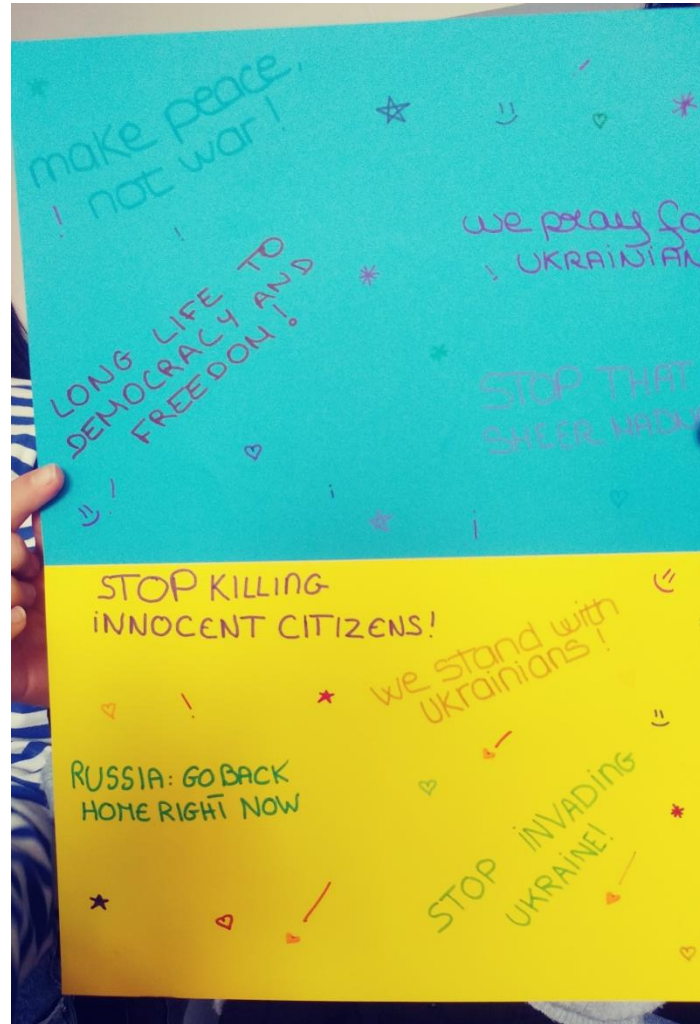 make peace,
not war!
we pray fo
UKRAINIAN
LONG LIFE TO
DEMOCRACY AND
FREEDOM!
STOP THAT
SHEER MADN
STOP KILLING
INNOCENT CITIZENS!
we stand with
Ukrainians!
RUSSIA: GO BACK
HOME RIGHT NOW
STOP INVADING
UKRAINE!